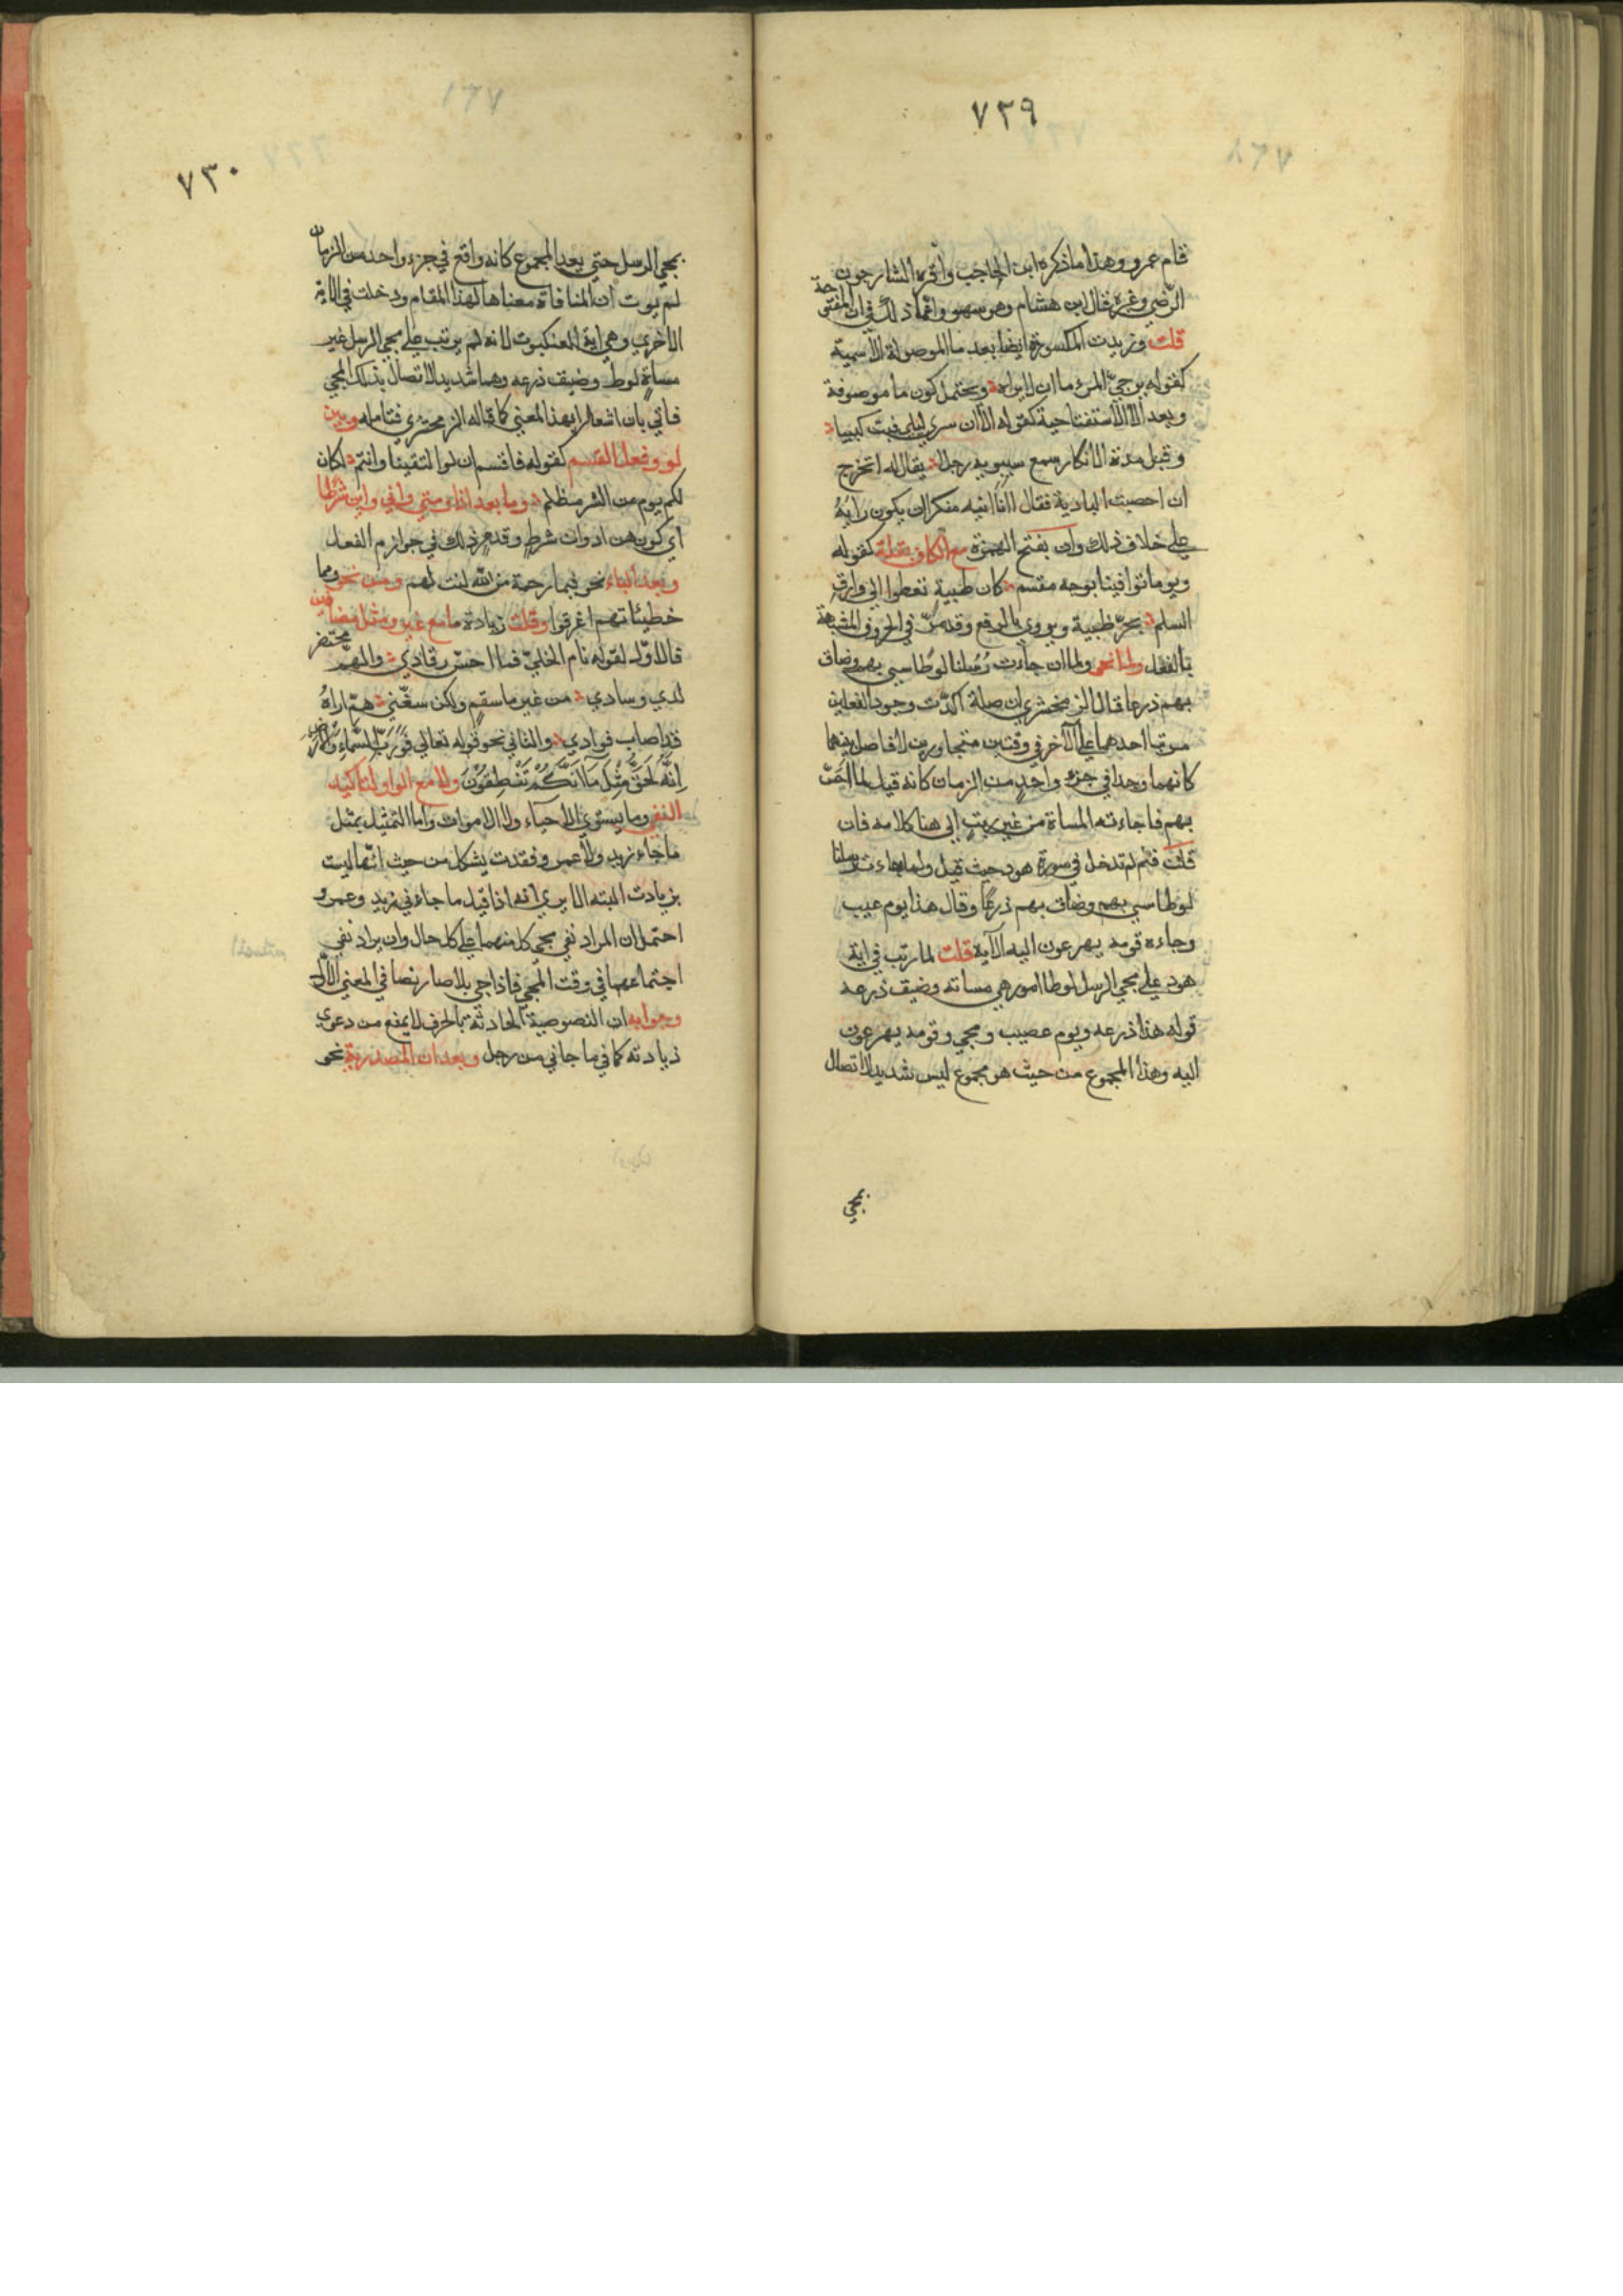 ٧٣٩
قام عمرو وهذا ما ذكره ابن الحاجب واقره الشارحون
الرضي وغيره قال ابن هشام وهو سهو وانما ذلك في ان المفتوحة
قلت وزيدت المكسورة ايضا بعد ما الموصولة الاسمية
كقوله يرجي المرء ما ان لا يراه ويحتمل كون ما موصوفة
وبعد الا الاستفتاحية كقوله الا ان سري ليلي فبت كييبا
وقبل مدة الانكار سمع سيبويه رجلا يقال له اتخرج
ان اخصبت البادية فقال اانا انيه منكرا ان يكون رايه
علي خلاف ذلك وان بفتح الهمزة مع الكاف بقلة كقوله
ويوما توافينا بوجه مقسم كان ظبية تعطوا الي وارق
السلم بجر ظبية ويروي بالرفع وقد مر في الحروف المشبهة
بالفعل ولما نحو ولما ان جاءت رسلنا لوطا سيي بهم وضاق
بهم ذرعا قال الزمخشري ان صلة اكدت وجود الفعلين
مرتبا احدهما علي الآخر في وقتين متجاورين لا فاصل بينهما
كانهما وجدا في جزء واحد من الزمان كانه قيل لما احس
بهم فاجاءته المساة من غير ريث الي هنا كلامه فان
قلت فلم لم تدخل في سورة هود حيث قيل ولما جاءت رسلنا
لوطا سيي بهم وضاق بهم ذرعا وقال هذا يوم عيب
وجاءه قومه يهرعون اليه الآية قلت لما رتب في اية
هود علي مجي الرسل لوطا امور هي مساته وضيق ذرعه
قوله هذا ذرعه ويوم عصيب ومجي وقومه يهرعون
اليه وهذا المجموع من حيث هو مجموع ليس شديد الاتصال
بمجي
٧٣٠
بمجي الرسل حتي يعد المجموع كانه واقع في جزء واحد من الزمان
لم يوت ان المنافاة معناها لهذا المقام ودخلت في الاية
الاخري وهي اية العنكبوت لانه لم يرتب علي مجي الرسل غير
مساة لوط وضيق ذرعه وهما شديد الاتصال بذلك المجي
فاتي بان اشعارا بهذا المعني كما قاله الزمخشري فتامله وبين
لو وفعل القسم كقوله فاقسم ان لو التقينا وانتم لكان
لكم يوم من الشر مظلم وما بعد اذا ومتي واي واين شرطا
اي كون هن ادوات شرط وقد مر ذلك في جوازم الفعل
وبعد الباء نحو فبما رحمة من الله لنت لهم ومن نحو مما
خطيئاتهم اغرقوا وقلت زيادة ما مع غير ومثل مضافين
فالاول لقوله نام الخلي فما احس رقادي والهم محتضر
لدي وسادي من غير ما سقم ولكن سفني هم اراه
قد اصاب فوادي والثاني نحو قوله تعالي فورب السماء والارض
انه لحق مثل ما انكم تنطقون ولا مع الواو لتاكيد
النفي وما يستوي الاحياء ولا الاموات واما التمثيل بمثل
ما جاء زيد ولا عمرو فقدت يشكل من حيث انها ليت
بزيادت البته الا يري انه اذا قيل ما جاءني زيد وعمرو
احتمل ان المراد نفي مجي كل منهما علي كل حال وان يراد نفي
اجتماعهما في وقت المجي فاذا جي بلا صار نصا في المعني الاول
وجوابه ان النصوصية الحادثة بالحرف لا يمنع من دعوي
زيادته كما في ما جاني من رجل وبعد ان المصدرية نحو